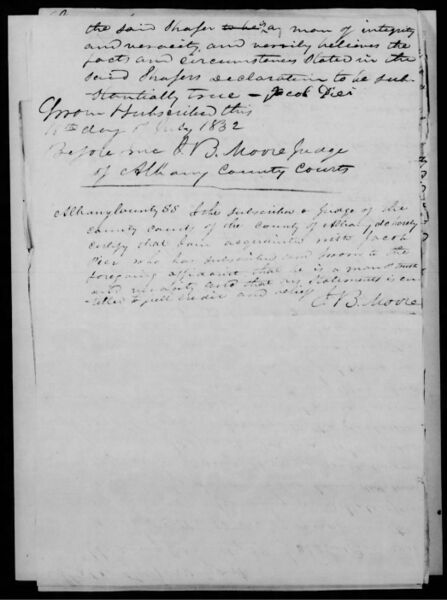 the said Shafer to be is a man of integrity
and veracity, and verrily believes the
facts and circumstances stated in the
said Shafers Declaration to be sub-
stantially true — Jacob Pier
Sworn & subscribed this
11th day of July 1832
Before me J B. Moore Judge
of Albany County Courts
Albany County SS I the subscriber a Judge of the
county courts of the County of Albany, do hereby
certify that I am acquainted with Jacob
Pier who has subscribed and sworn to the
foregoing affidavit that he is a man of truth
and veracity and that his statements is en-
titled to full credit and belief
J B. Moore